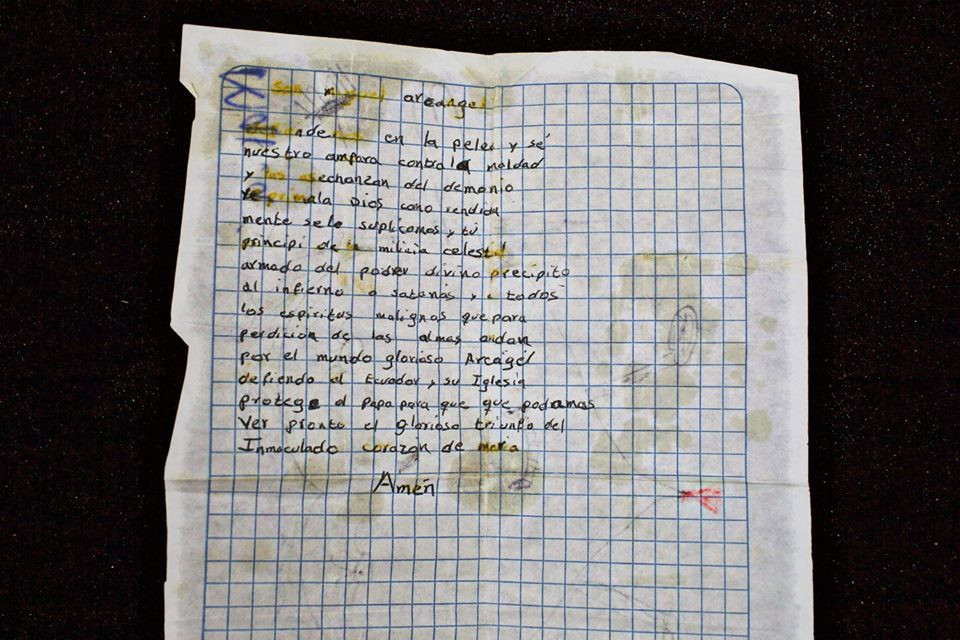 san miguel arcangel
en la pelea y sé
nuestro ampara contra la maldad
y las asechanzan del demonio
Dios como rendida
mente selo suplicamos y tú
principi de la milicia celestial
armado del podrer divino precipito
al infierno a satanás y a todos
los espiritus malignos que para
perdicion de las almas andan
por el mundo glorioso Arcágel
defiendo al Ecuador y su Iglesia
protege al Papa para que que podamas
Ver pronto el glorioso triunfo del
Inmaculado corazon de maria
Amén